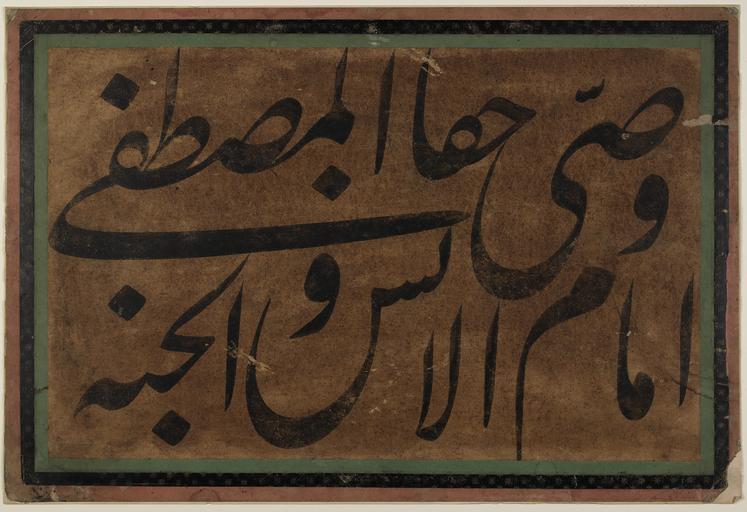 وصّی المصطفی حقا
امام الانس و الجنه